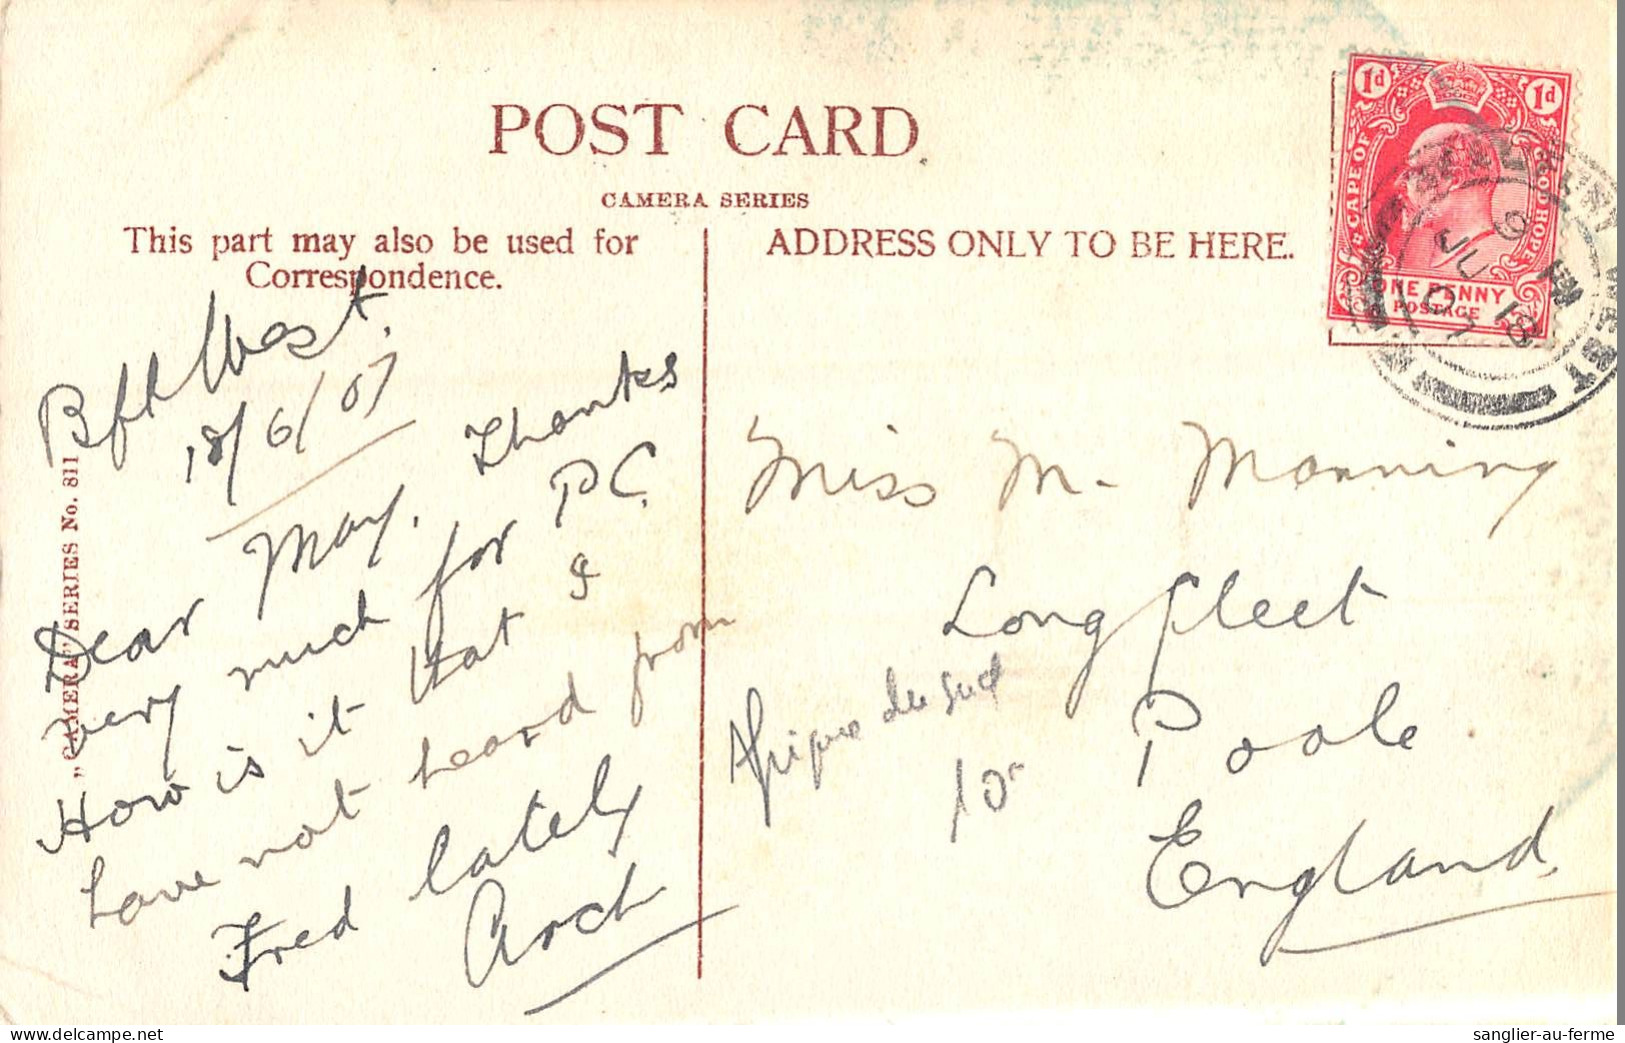 POST CARD
CAMERA SERIES
This part may also be used for
Correspondence.
ADDRESS ONLY TO BE HERE.
1d 1d
CAPE OF GOOD HOPE
ONE PENNY
POSTAGE
WEST
JU 18
07
„CAMERA" SERIES No. 811
West.
18/6/07
Dear May. Thanks
very much for P.C.
How is it that &
have not heard from
Fred lately
Arch
Miss M. Manning
Longfleet
Poole
England.
Afrique du Sud
sanglier-au-ferme